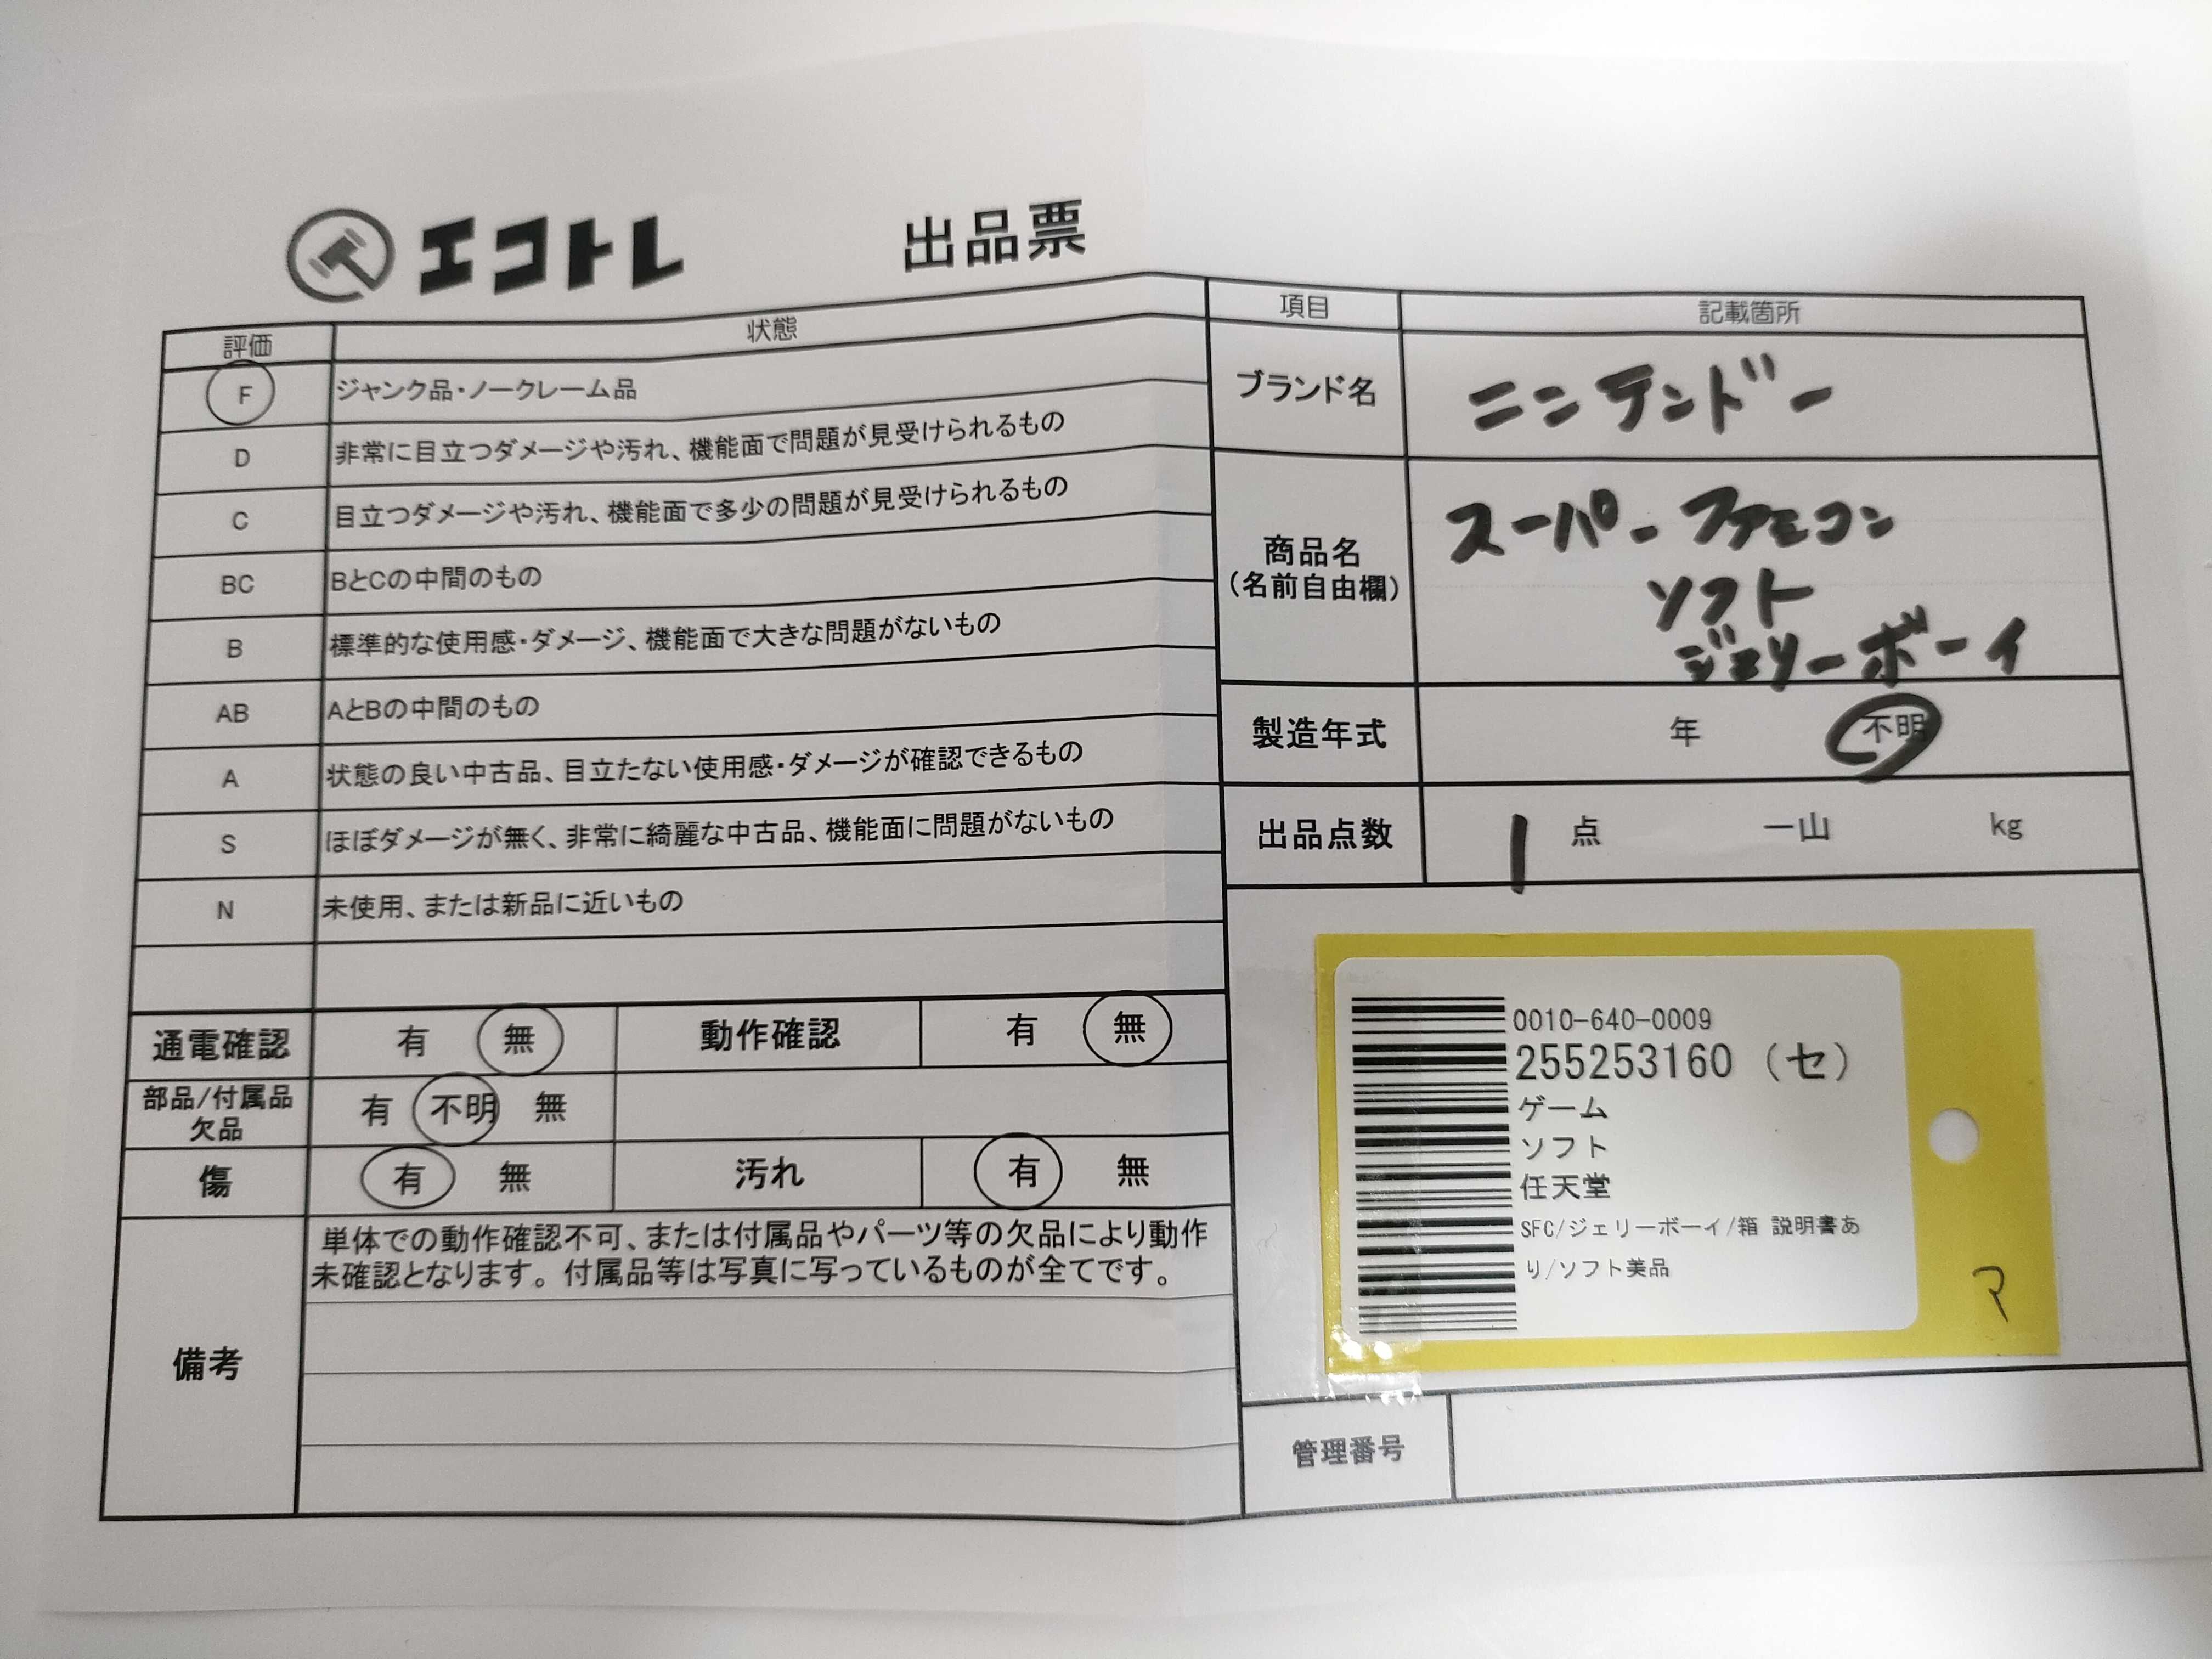 エコトレ
出品票
評価 状態
F ジャンク品・ノークレーム品
D 非常に目立つダメージや汚れ、機能面で問題が見受けられるもの
C 目立つダメージや汚れ、機能面で多少の問題が見受けられるもの
BC BとCの中間のもの
B 標準的な使用感・ダメージ、機能面で大きな問題がないもの
AB AとBの中間のもの
A 状態の良い中古品、目立たない使用感・ダメージが確認できるもの
S ほぼダメージが無く、非常に綺麗な中古品、機能面に問題がないもの
N 未使用、または新品に近いもの
通電確認 有 無 動作確認 有 無
部品/付属品
欠品
有 不明 無
傷 有 無 汚れ 有 無
備考
単体での動作確認不可、または付属品やパーツ等の欠品により動作
未確認となります。付属品等は写真に写っているものが全てです。
項目 記載箇所
ブランド名 ニンテンドー
商品名
(名前自由欄)
スーパーファミコン
ソフト
ジェリーボーイ
製造年式 年 不明
出品点数 1 点 一山 kg
0010-640-0009
255253160 (セ)
ゲーム
ソフト
任天堂
SFC/ジェリーボーイ/箱 説明書あ
り/ソフト美品
マ
管理番号